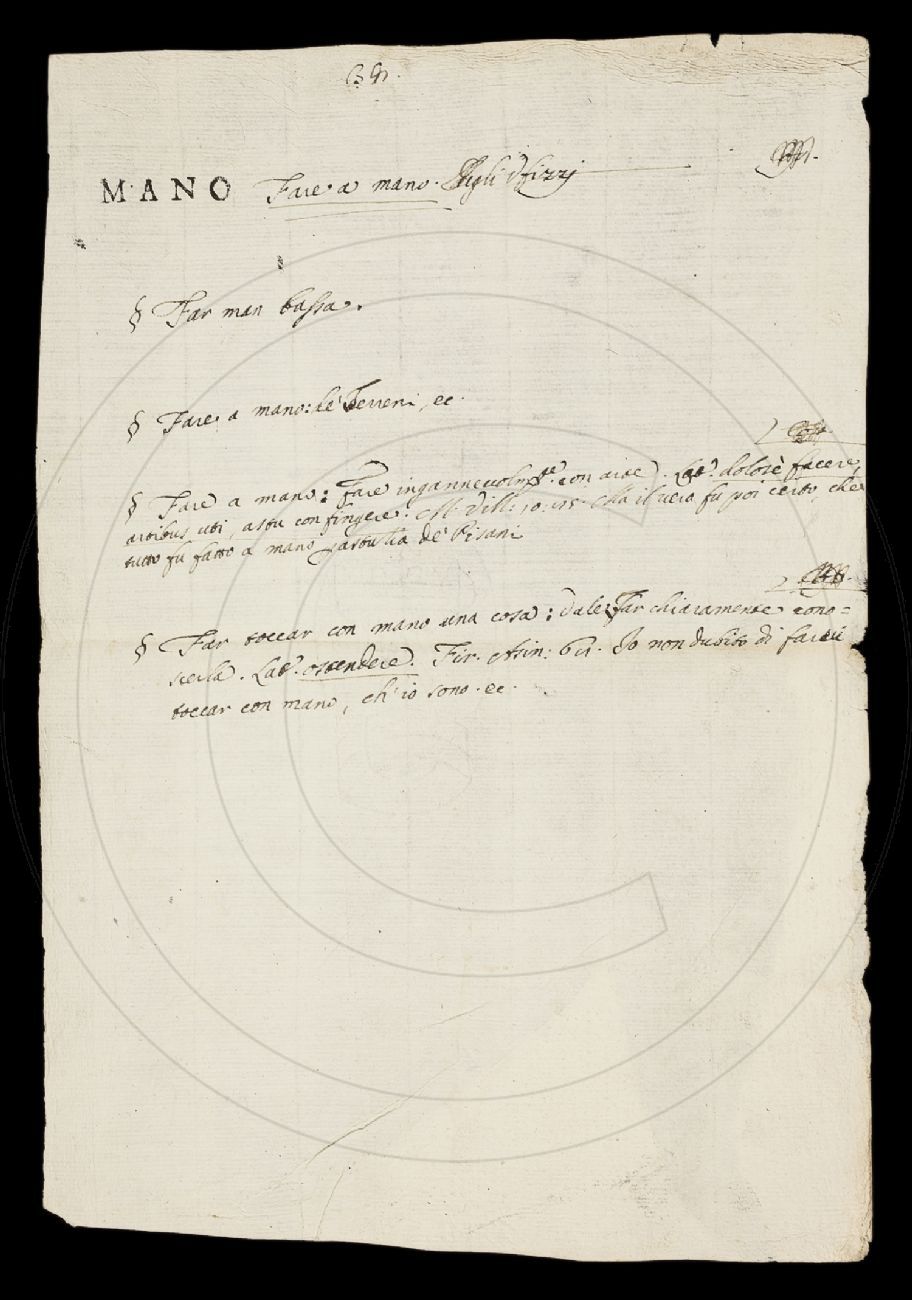 MANO Fare a mano.
§ Far man bassa.
§ Fare a mano: de Terreni, ec.
§ Fare a mano: fare ingannevolmte. con arte. Lat. dolosè facere,
artibus uti, astu confingere. M. Vill. 10. Ma il vero fu poi certo, che
tutto fu fatto a mano de Pisani
§ Far toccar con mano una cosa: Far chiaramente cono=
scerla. Lat. ostendere. Fir. Asin: Io non dubito di farui
toccar con mano, ch' io sono. ec.